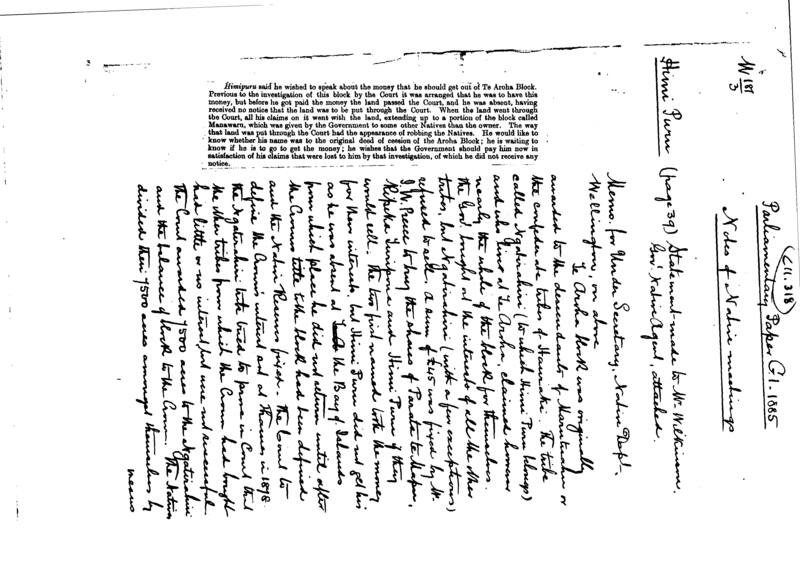 W 187/3
(C11.318)
Parliamentary Paper G1.-1885
Notes of Native meetings
Himi Puru (page 39) Statement made to Mr. Wilkinson.
Govt. Native Agent, attached.
Himipuru said he wished to speak about the money that he should get out of Te Aroha Block.
Previous to the investigation of this block by the Court it was arranged that he was to have this
money, but before he got paid the money the land passed the Court, and he was absent, having
received no notice that the land was to be put through the Court. When the land went through
the Court, all his claims on it went with the land, extending up to a portion of the block called
Manawaru, which was given by the Government to some other Natives than the owner. The way
that land was put through the Court had the appearance of robbing the Natives. He would like to
know whether his name was to the original deed of cession of the Aroha Block; he is waiting to
know if he is to go to get the money; he wishes that the Government should pay him now in
satisfaction of his claims that were lost to him by that investigation, of which he did not receive any
notice.
Memo. for Under Secretary, Native Dept.
Wellington, on above
Te Aroha block was originally
awarded to the descendants of Marutuahu or
the confederate tribes of Hauraki. The tribe
called Ngatirahiri (to which Himi Puru belongs)
and who live at Te Aroha, claimed however
nearly the whole of the block for themselves.
the Govt. bought out the interests of all the other
tribes, but Ngatirahiri (with a few exceptions)
refused to sell. A sum of £45 was fixed by Mr.
J. W. Preece to buy the shares of
and Himi Puru if they
would sell. The two first named took the money
for their interests, but Himi Puru did not get his
as he was absent at the Bay of Islands
from which place he did not return until after
the Crown's title to the block had been defined
and the Native Reserves fixed. The Court to
define the Crown's interest sat at Thames in 1878.
the Ngatirahiri tribe tried to prove in Court that
the other tribes from which the Crown had bought
had little or no interest but were not successful.
The Court awarded 7500 acres to the Ngatirahiri
and the balance of block to the Crown. The Natives
divided their 7500 acres amongst themselves by
means